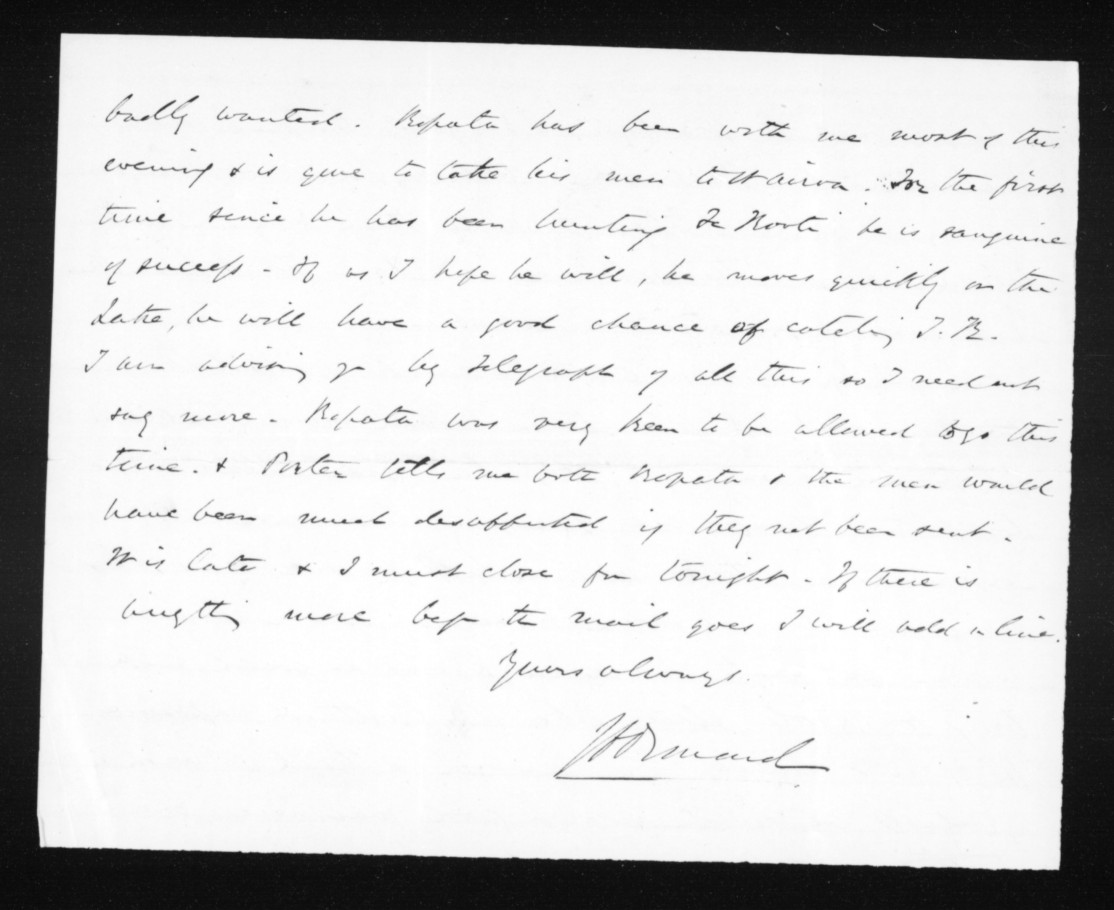 badly wanted. Ropata has been with me most of this
evening & is gone to take his men to Wairoa. For the first
time since he has been hunting Te Kooti he is sanguine
of success - If as I hope he will, he moves quickly on the
Lake, he will have a good chance of catching T.K.
I am advising you by telegraph of all this so I need not
say more - Ropata was very keen to be allowed to go this
time. & Porter tells me both Ropata & the men would
have been much disaffected if they not been sent -
It is late & I must close for tonight - If there is
anything more before the mail goes I will add a line.
Yours always.
JD Ormond